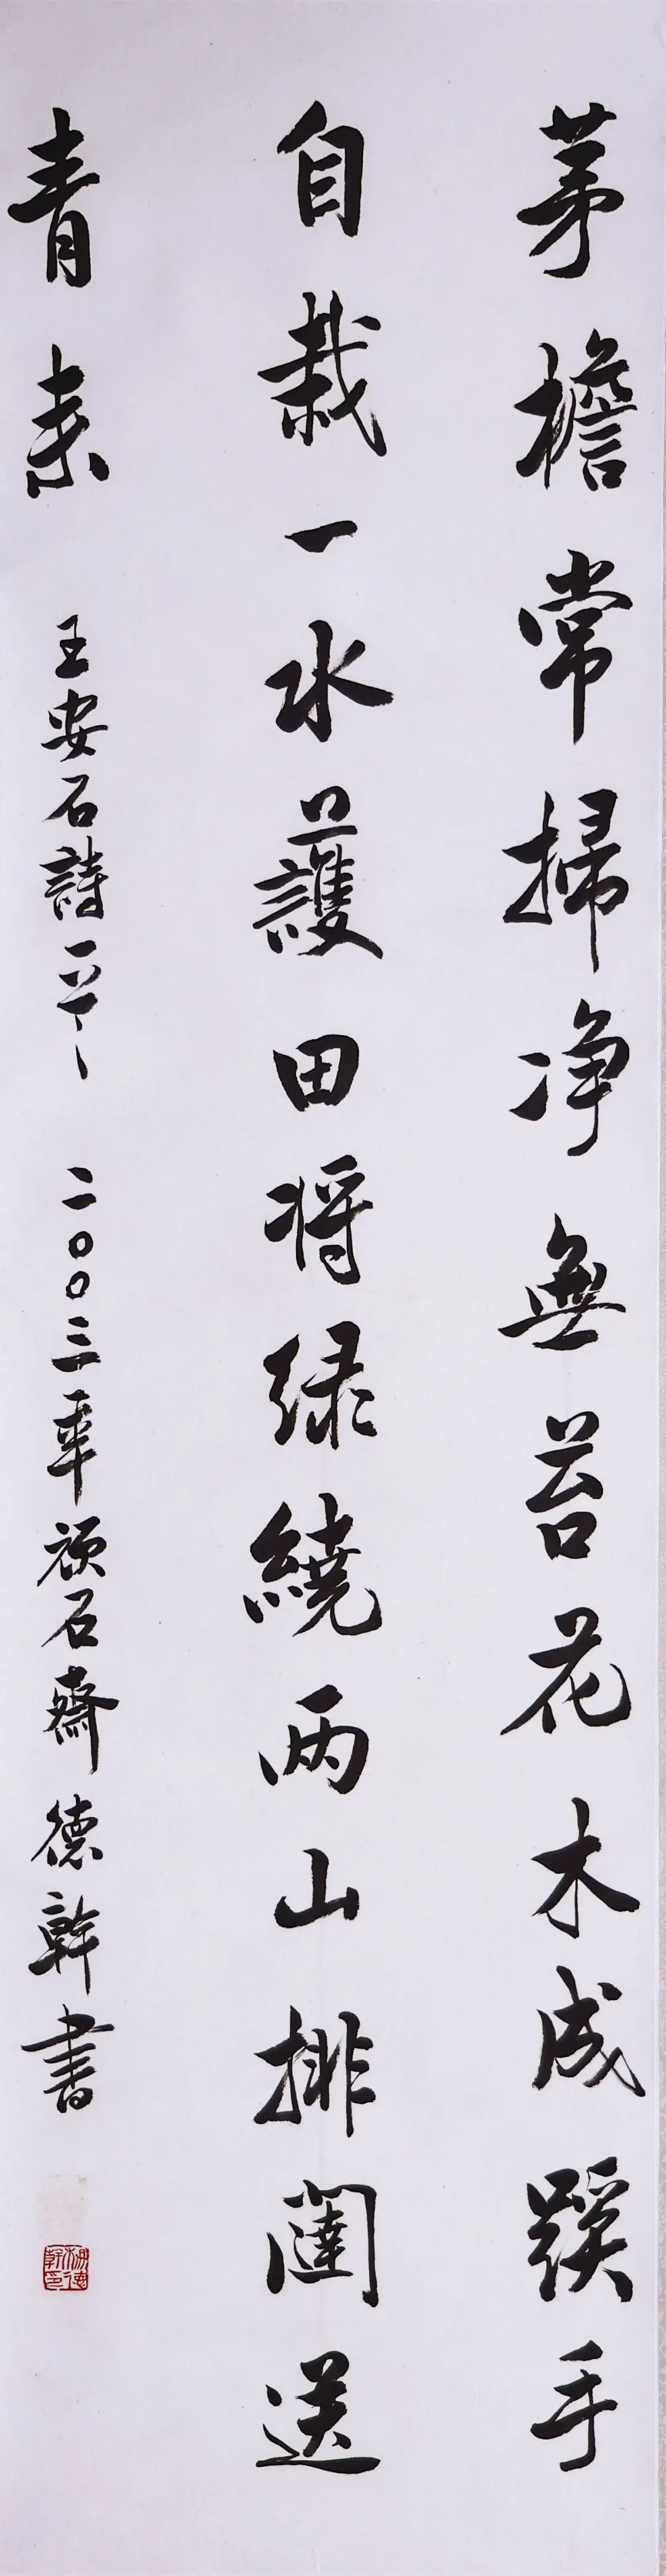 茅檐常掃净無苔花木成蹊手
自栽一水護田将绿繞兩山排闥送
青来
王安石詩一首 二〇〇三年頑石齋德幹書